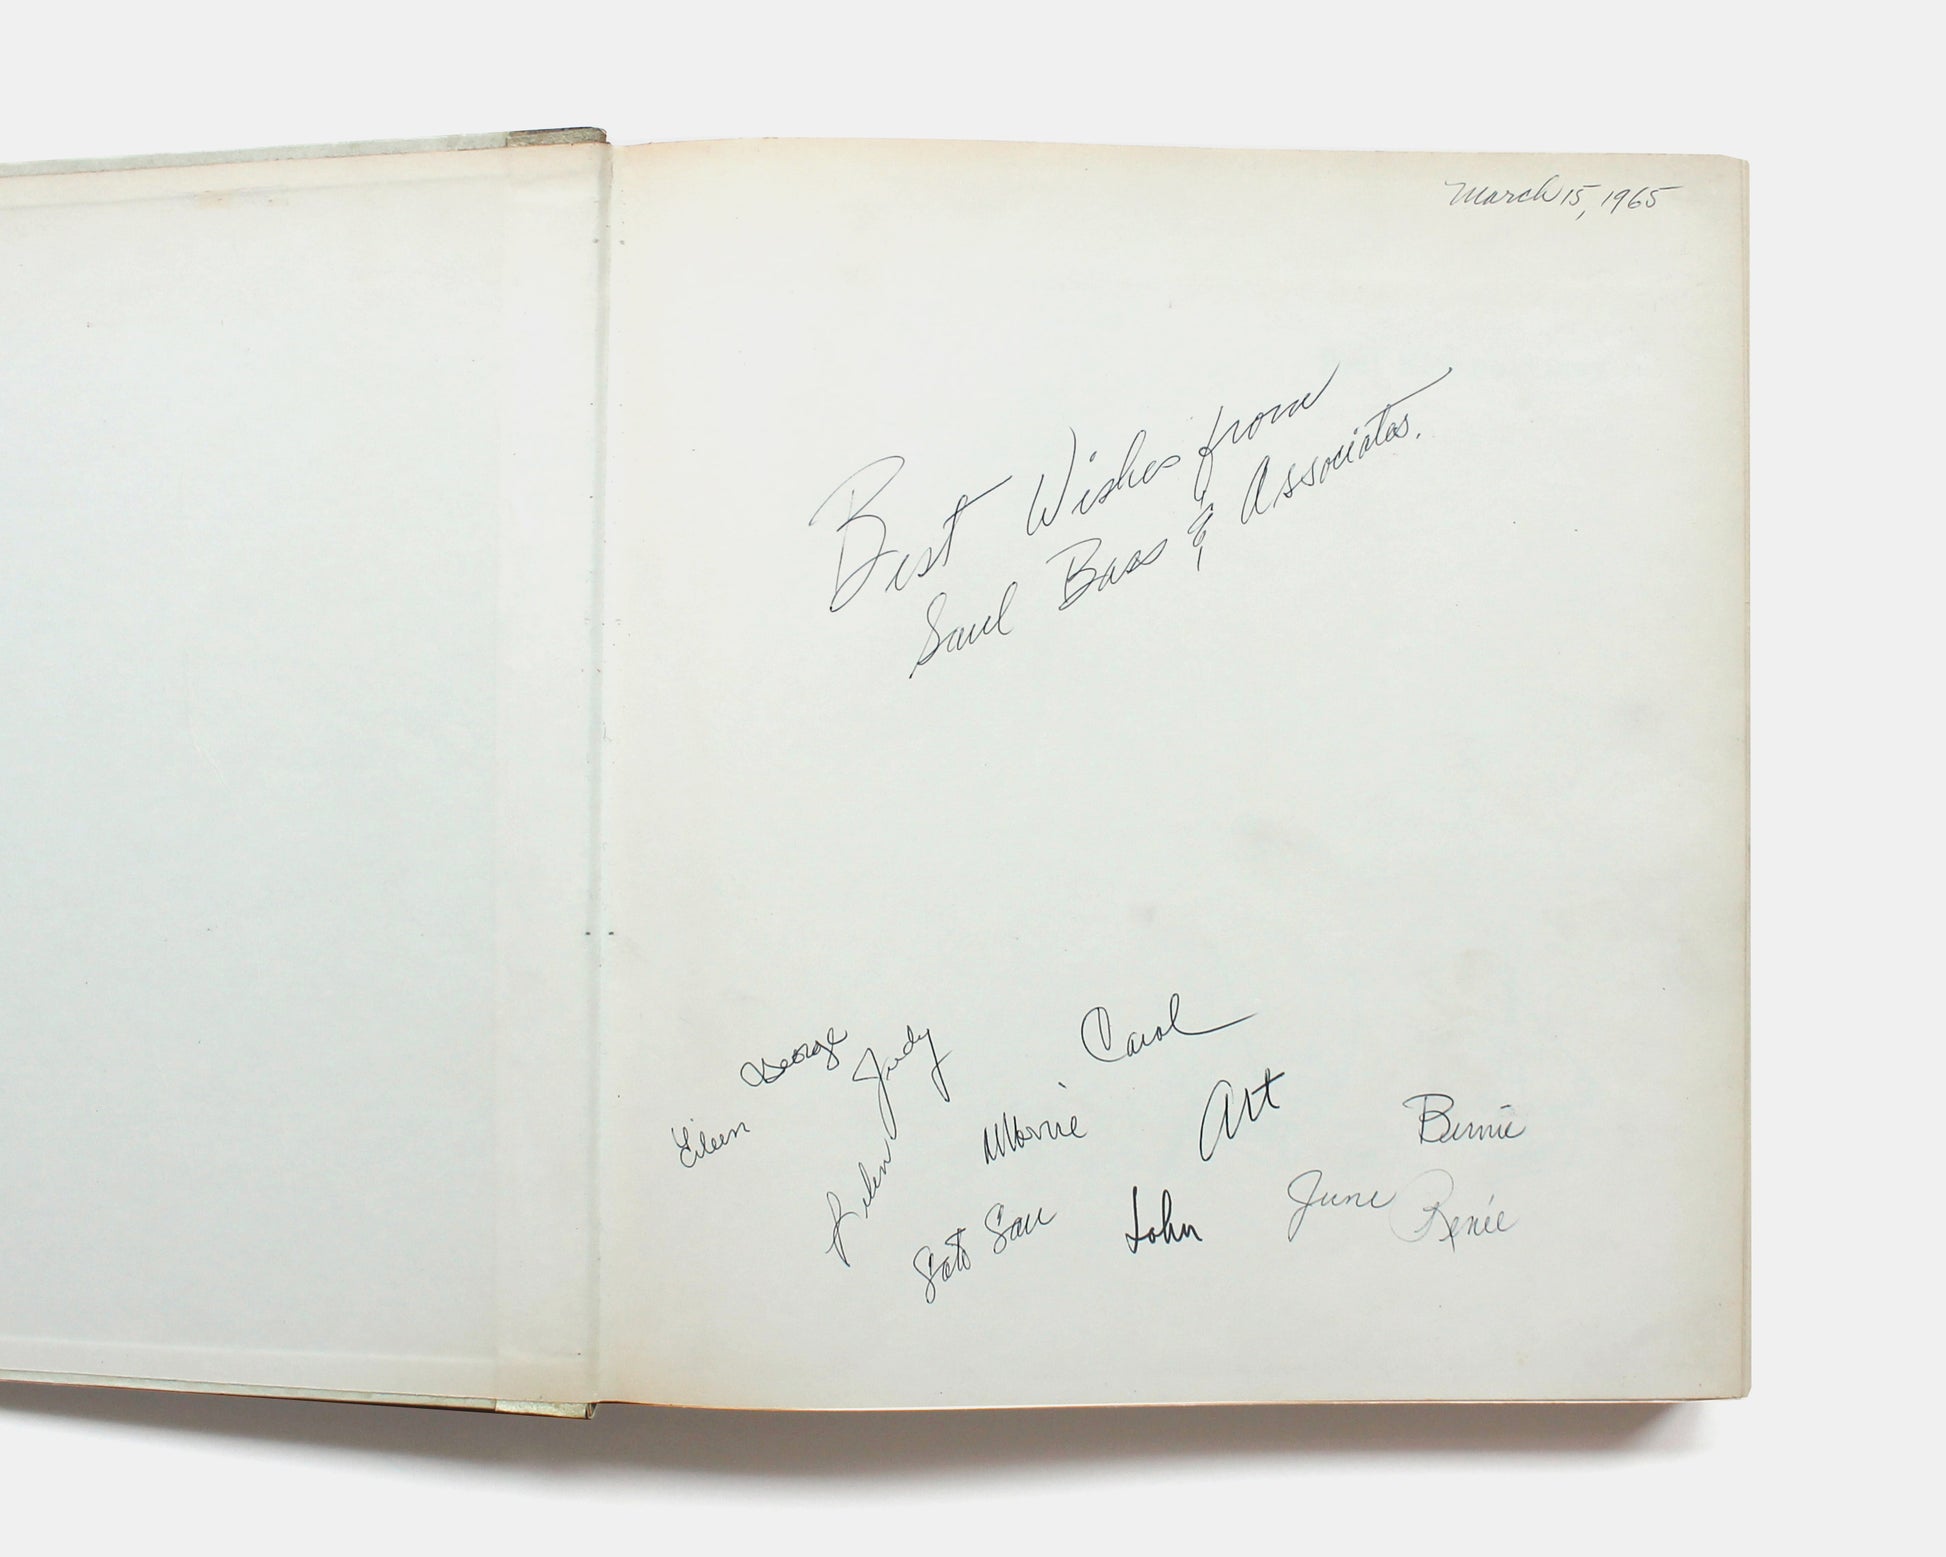 March 15, 1965
Best Wishes from
Saul Bass & Associates.
George
Judy
Carol
Eileen
Helen
Morrie
Art
Bernie
Sato San
John
June
Renée